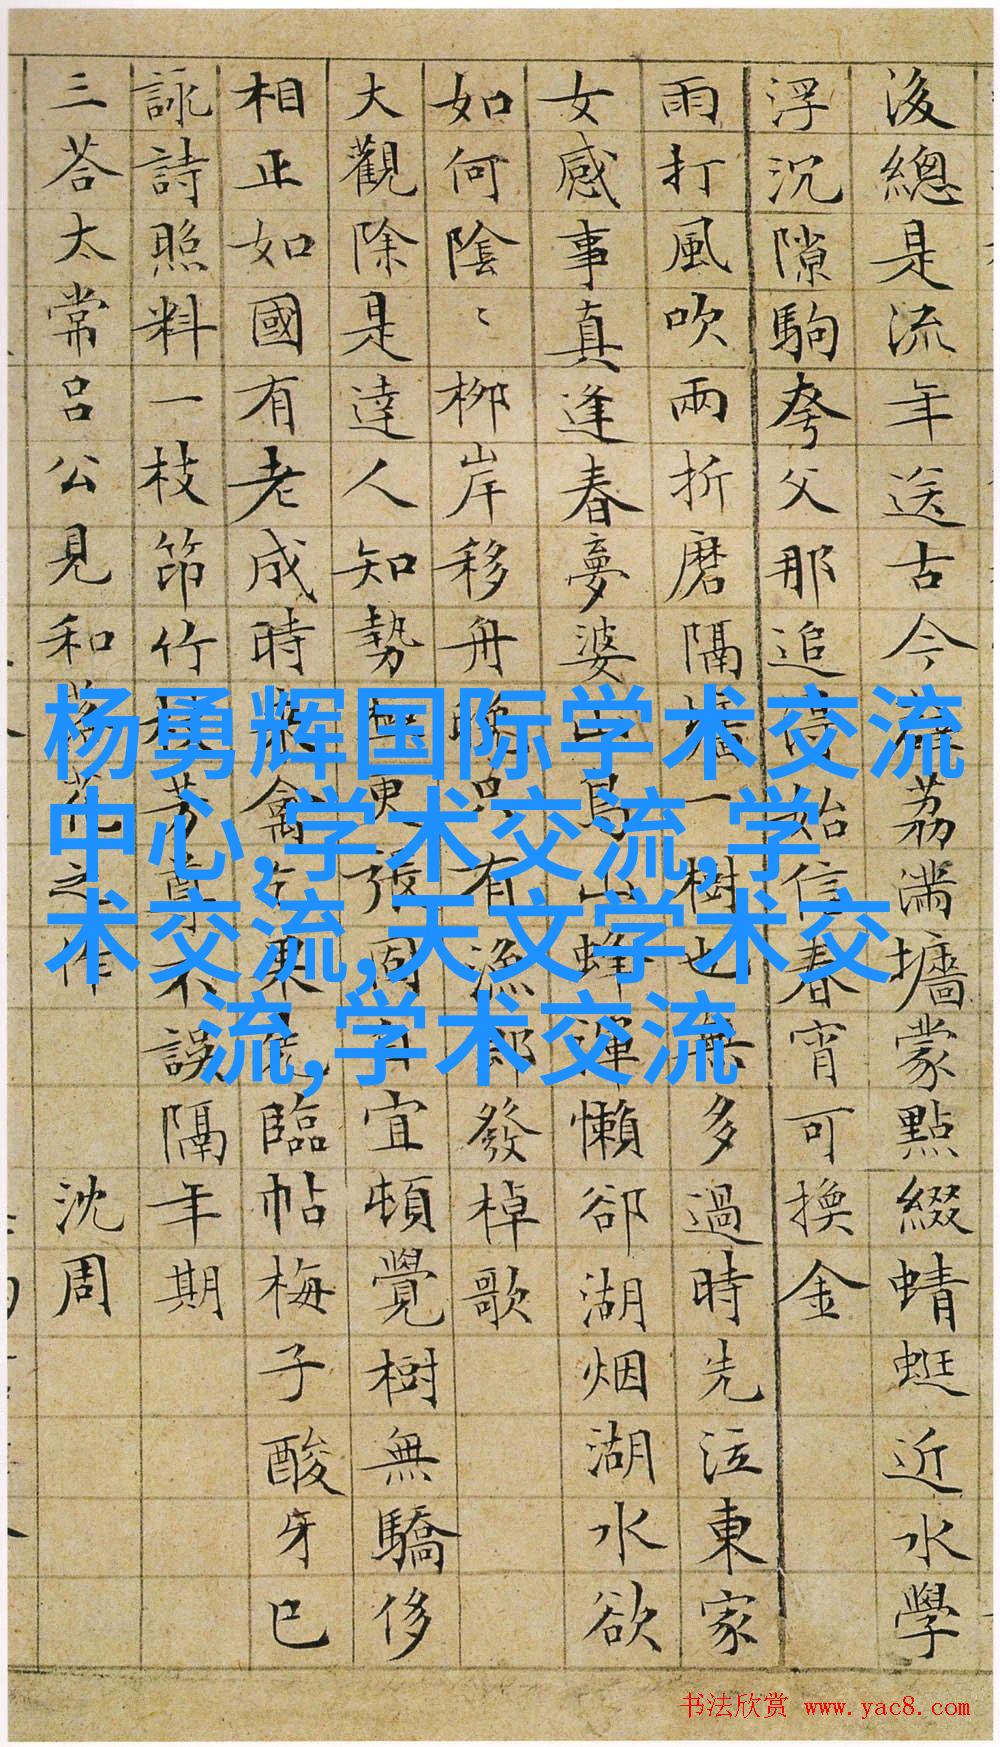 後總是流年送古今
荔满墻蒙點綴蜻蜓近水學
浮沉隙駒夸父那追
始信春宵可換金
雨打風吹兩折磨隔墻一樹也無多過時先泣東家
女感事真逢春夢婆
山蜂
懶郤湖烟湖水欲
如何陰〻柳岸移舟晚只有漁郎發棹歌
大觀除是達人知勢極更張固自宜頓覺樹無驕侈
相正如國有老成時
禽
果
臨帖梅子酸牙已
詠詩照料一枝笻竹
芳尊不誤隔年期
三荅太常呂公見和落花之作
沈周
杨勇辉国际学术交流
中心,学术交流,学
术交流,天文学术交
流,学术交流
书法欣赏 www.yac8.com